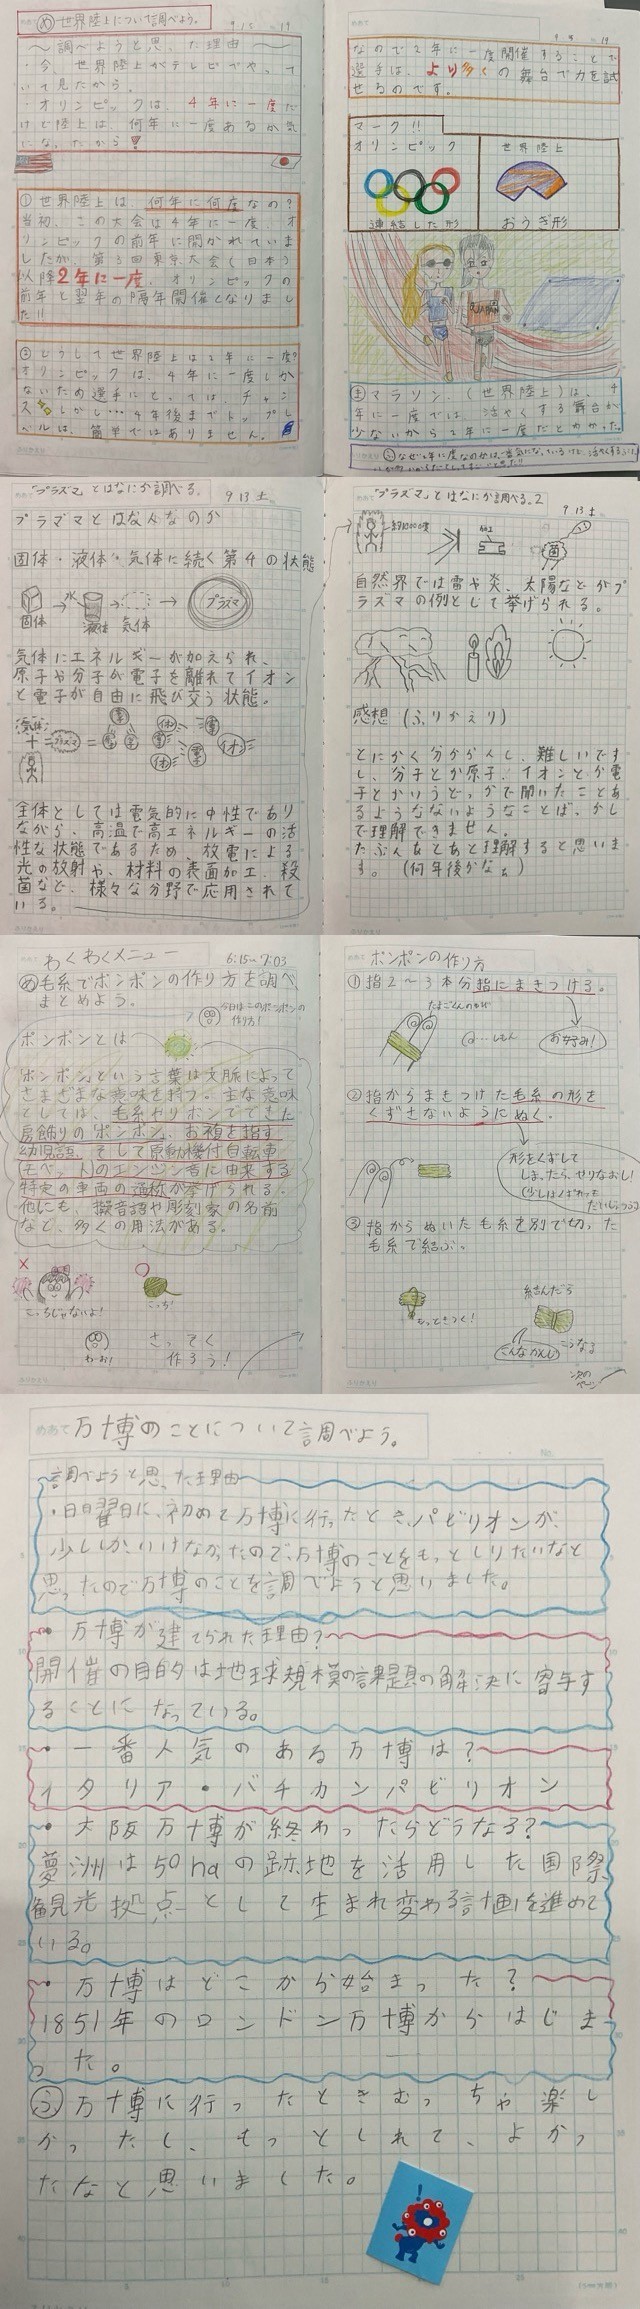 め 世界陸上について調べよう。
9 15 19
〜調べようと思った理由〜
・今、世界陸上がテレビでやって
いて見たから。
・オリンピックは、4年に一度だ
けど陸上は、何年に一度あるか気
になったから!
①世界陸上は、何年に何度なの?
当初、この大会は4年に一度、オ
リンピックの前年に開かれていま
したが、第3回東京大会(日本)
以降2年に一度、オリンピックの
前年と翌年の隔年開催となりまし
た!!
②どうして世界陸上は2年に一度?
オリンピックは、4年に一度しか
ないため選手にとっては、チャン
ス しかし…4年後までトップレ
ベルは、簡単ではありません。
なので2年に一度開催することで
選手は、より多くの舞台で力を試
せるのです。
マーク!!
オリンピック
世界陸上
連結した形
おうぎ形
JAPAN
ま マラソン、(世界陸上)は、4
年に一度では、活やくする舞台が
少ないから2年に一度だとわかった。
「プラズマ」とはなにか調べる。
9 13 土
プラズマとはなんなのか
固体・液体・気体に続く第4の状態
固体
液体
気体
プラズマ
気体にエネルギーが加えられ、
原子や分子が電子を離れてイオン
と電子が自由に飛び交う状態。
気体
+
プラズマ
=
全体としては電気的に中性であり
ながら、高温で高エネルギーの活
性な状態であるため、放電による
光の放射や、材料の表面加工、殺
菌など、様々な分野で応用されて
いる。
「プラズマ」とはなにか調べる。2
9 13 土
加工
菌
自然界では雷や炎、太陽などがプ
ラズマの例として挙げられる。
感想(ふりかえり)
とにかく分からんし、難しいです
し、分子とか原子、イオンとか電
子とかいうどっかで聞いたことあ
るようなないようなことば、かし
で理解できません。
たぶんあとあと理解すると思いま
す。(何年後かなぁ)
わくわくメニュー
6:15〜7:03
め 毛糸でポンポンの作り方を調べ、
まとめよう。
今日はこのポンポンの
作り方!
ポンポンとは
「ポンポン」という言葉は文脈によって
さまざまな意味を持つ。主な意味
としては、毛糸やリボンでできた
房飾りの「ポンポン」、お腹を指す
幼児語、そして原動機付自転車
(モペット)のエンジン音に由来する
特定の車両の通称が挙げられる。
他にも、擬音語や彫刻家の名前
など、多くの用法がある。
こっちじゃないよ!
こっち!
わーお!
さっそく
作ろう!
ポンポンの作り方
①指2〜3本分指にまきつける。
お好み!
②指からまきつけた毛糸の形を
くずさないようにぬく。
形をくずして
しまったら、やりなおし!
(少しはくずれても
だいじょうぶ)
③指からぬいた毛糸を別で切った
毛糸で結ぶ。
結んだら
こうなる
こんなかんじ
次の
ページ
めあて 万博のことについて調べよう。
No.
調べようと思った理由
・日曜日に、初めて万博に行ったとき、パビリオンが、
少ししかいけなかったので、万博のことをもっとしりたいなと
思ったので万博のことを調べようと思いました。
・万博が建てられた理由?
開催の目的は地球規模の課題の解決に寄与す
ることになっている。
・一番人気のある万博は?
イタリア・バチカンパビリオン
・大阪万博が終わったらどうなる?
夢洲は50haの跡地を活用した国際
観光拠点として生まれ変わる計画を進めて
いる。
・万博はどこから始まった?
1851年のロンドン万博からはじま
った。
ふ 万博に行ったときむっちゃ楽し
かったし、もっとしれて、よかっ
たなと思いました。